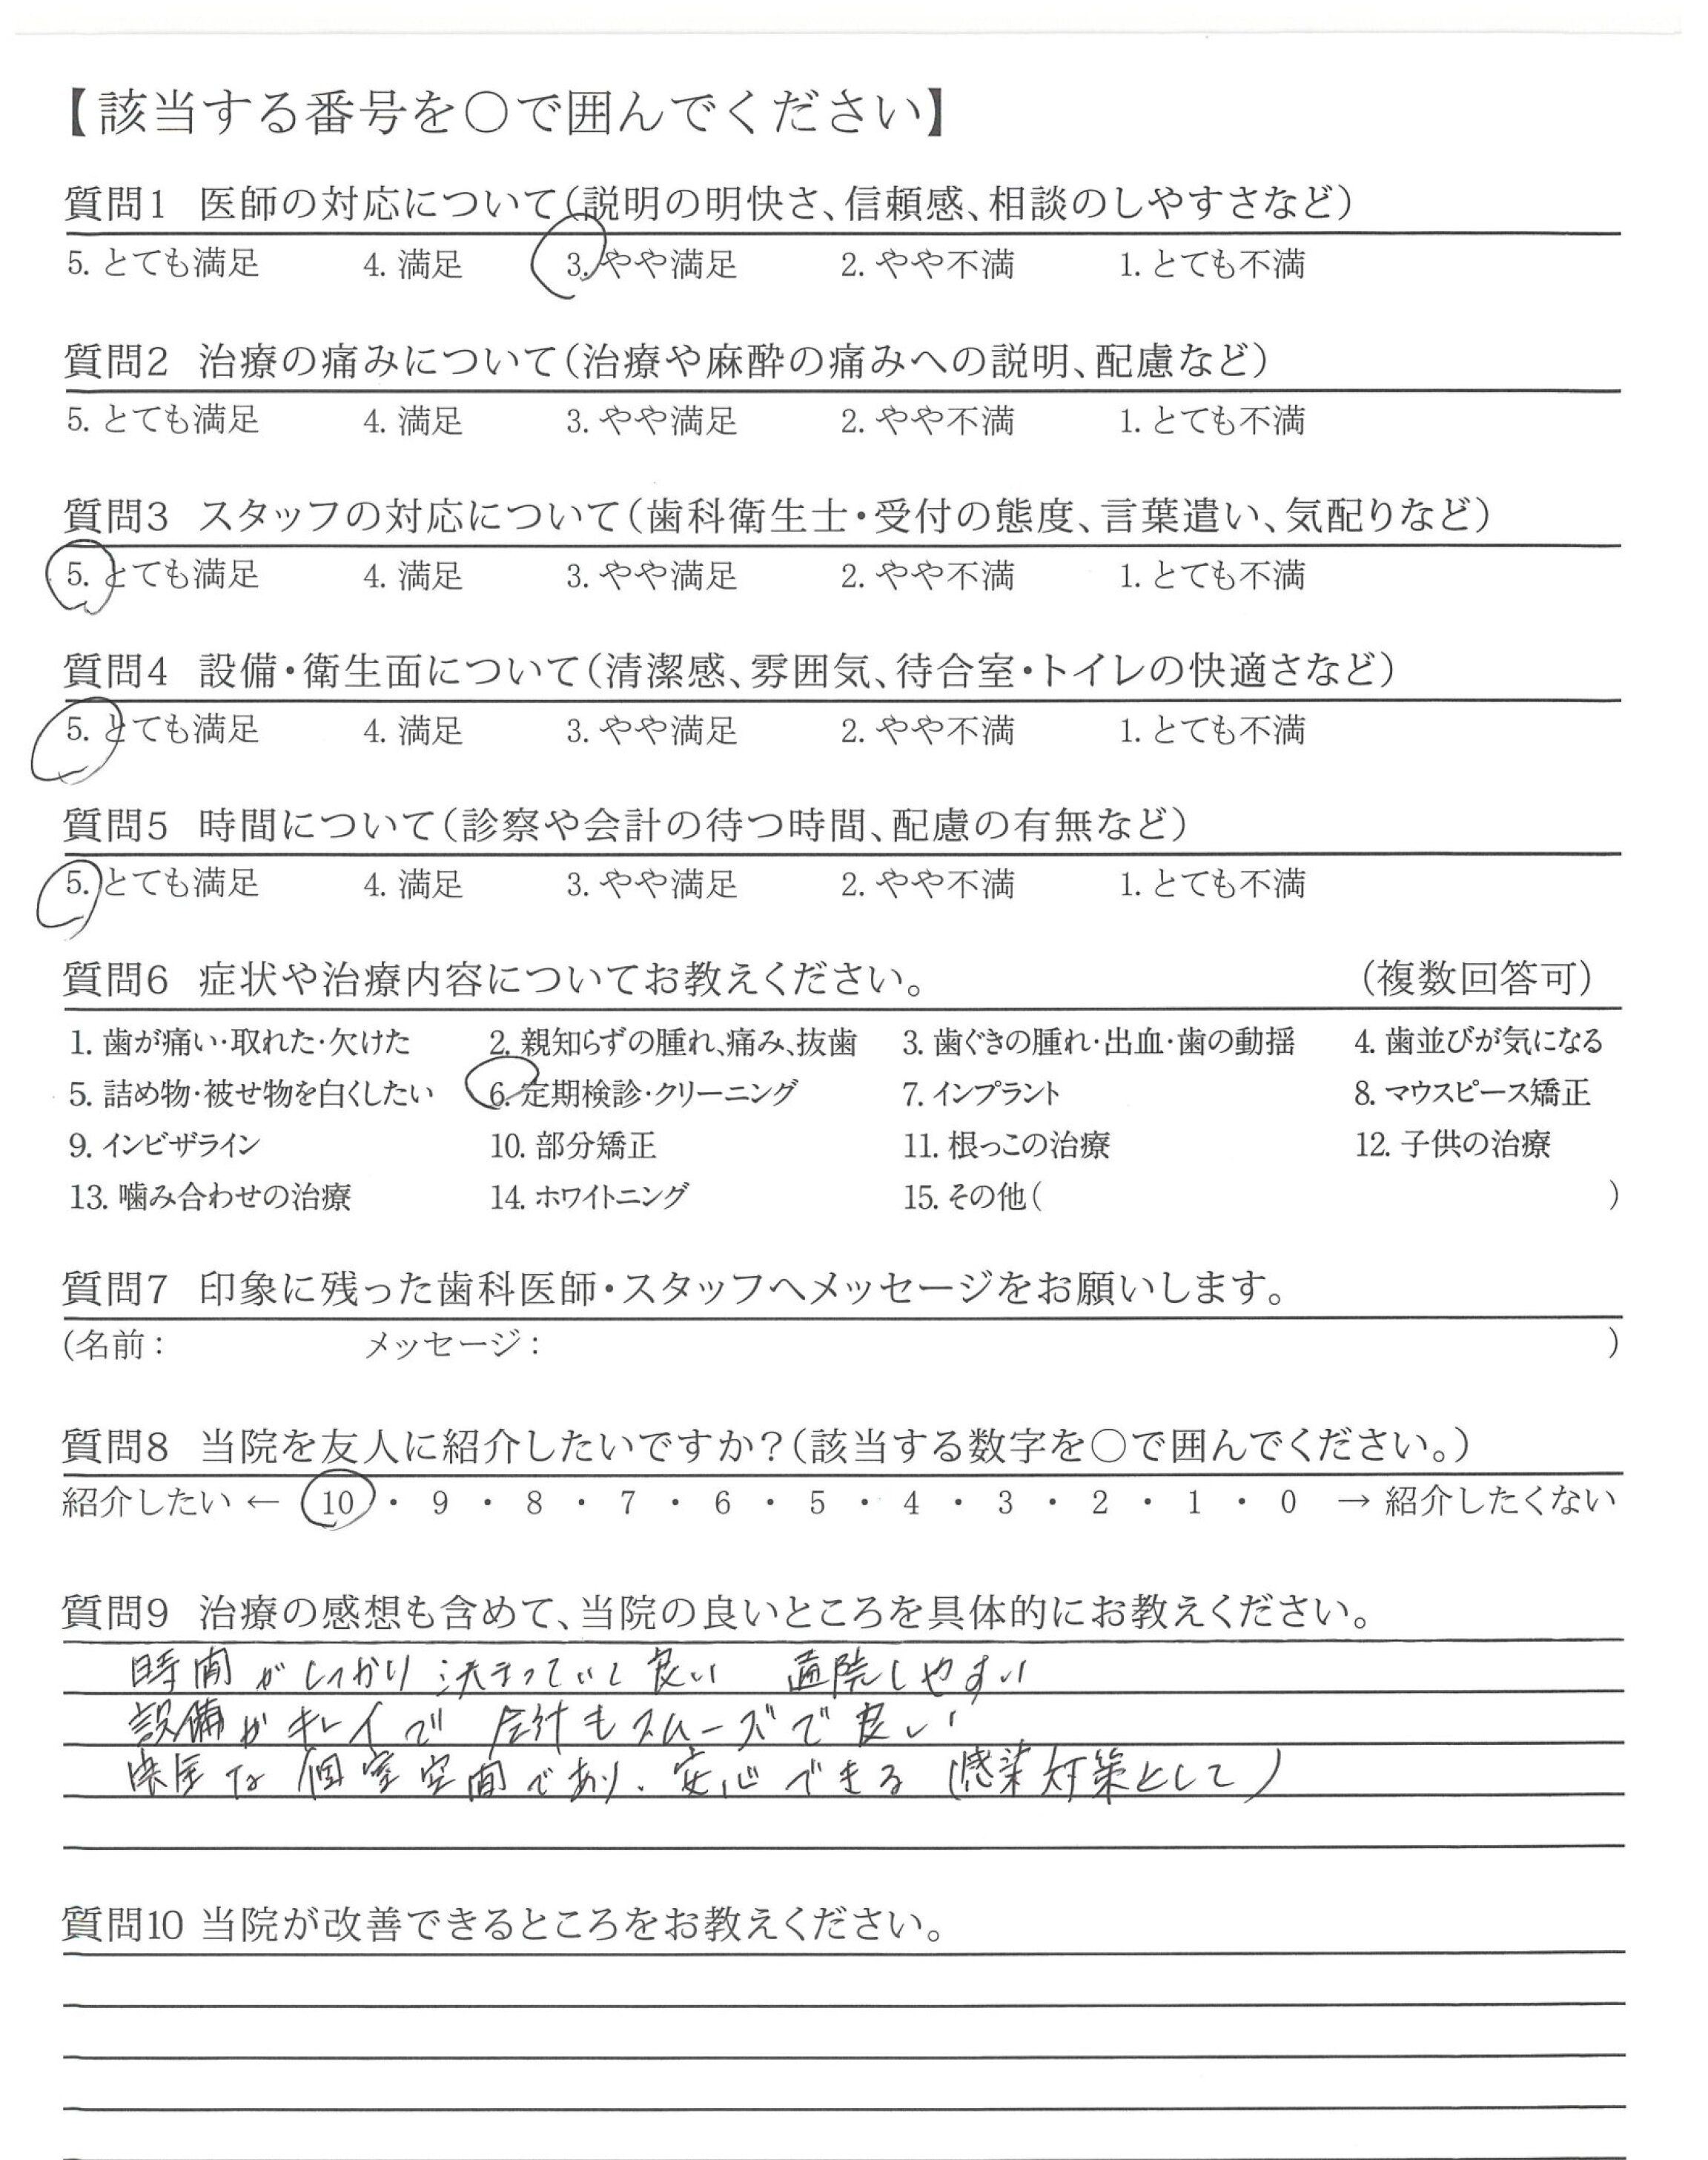 【該当する番号を○で囲んでください】
質問1 医師の対応について(説明の明快さ、信頼感、相談のしやすさなど)
5. とても満足 4. 満足 3. やや満足 2. やや不満 1. とても不満
質問2 治療の痛みについて(治療や麻酔の痛みへの説明、配慮など)
5. とても満足 4. 満足 3. やや満足 2. やや不満 1. とても不満
質問3 スタッフの対応について(歯科衛生士・受付の態度、言葉遣い、気配りなど)
5. とても満足 4. 満足 3. やや満足 2. やや不満 1. とても不満
質問4 設備・衛生面について(清潔感、雰囲気、待合室・トイレの快適さなど)
5. とても満足 4. 満足 3. やや満足 2. やや不満 1. とても不満
質問5 時間について(診察や会計の待つ時間、配慮の有無など)
5. とても満足 4. 満足 3. やや満足 2. やや不満 1. とても不満
質問6 症状や治療内容についてお教えください。 (複数回答可)
1. 歯が痛い・取れた・欠けた 2. 親知らずの腫れ、痛み、抜歯 3. 歯ぐきの腫れ・出血・歯の動揺 4. 歯並びが気になる
5. 詰め物・被せ物を白くしたい 6. 定期検診・クリーニング 7. インプラント 8. マウスピース矯正
9. インビザライン 10. 部分矯正 11. 根っこの治療 12. 子供の治療
13. 噛み合わせの治療 14. ホワイトニング 15. その他( )
質問7 印象に残った歯科医師・スタッフへメッセージをお願いします。
(名前: メッセージ: )
質問8 当院を友人に紹介したいですか?(該当する数字を○で囲んでください。)
紹介したい ← 10 ・ 9 ・ 8 ・ 7 ・ 6 ・ 5 ・ 4 ・ 3 ・ 2 ・ 1 ・ 0 → 紹介したくない
質問9 治療の感想も含めて、当院の良いところを具体的にお教えください。
時間がしっかり決まっていて良い 通院しやすい
設備がキレイで 会計もスムーズで良い
な個室空間であり、安心できる (感染対策として)
質問10 当院が改善できるところをお教えください。